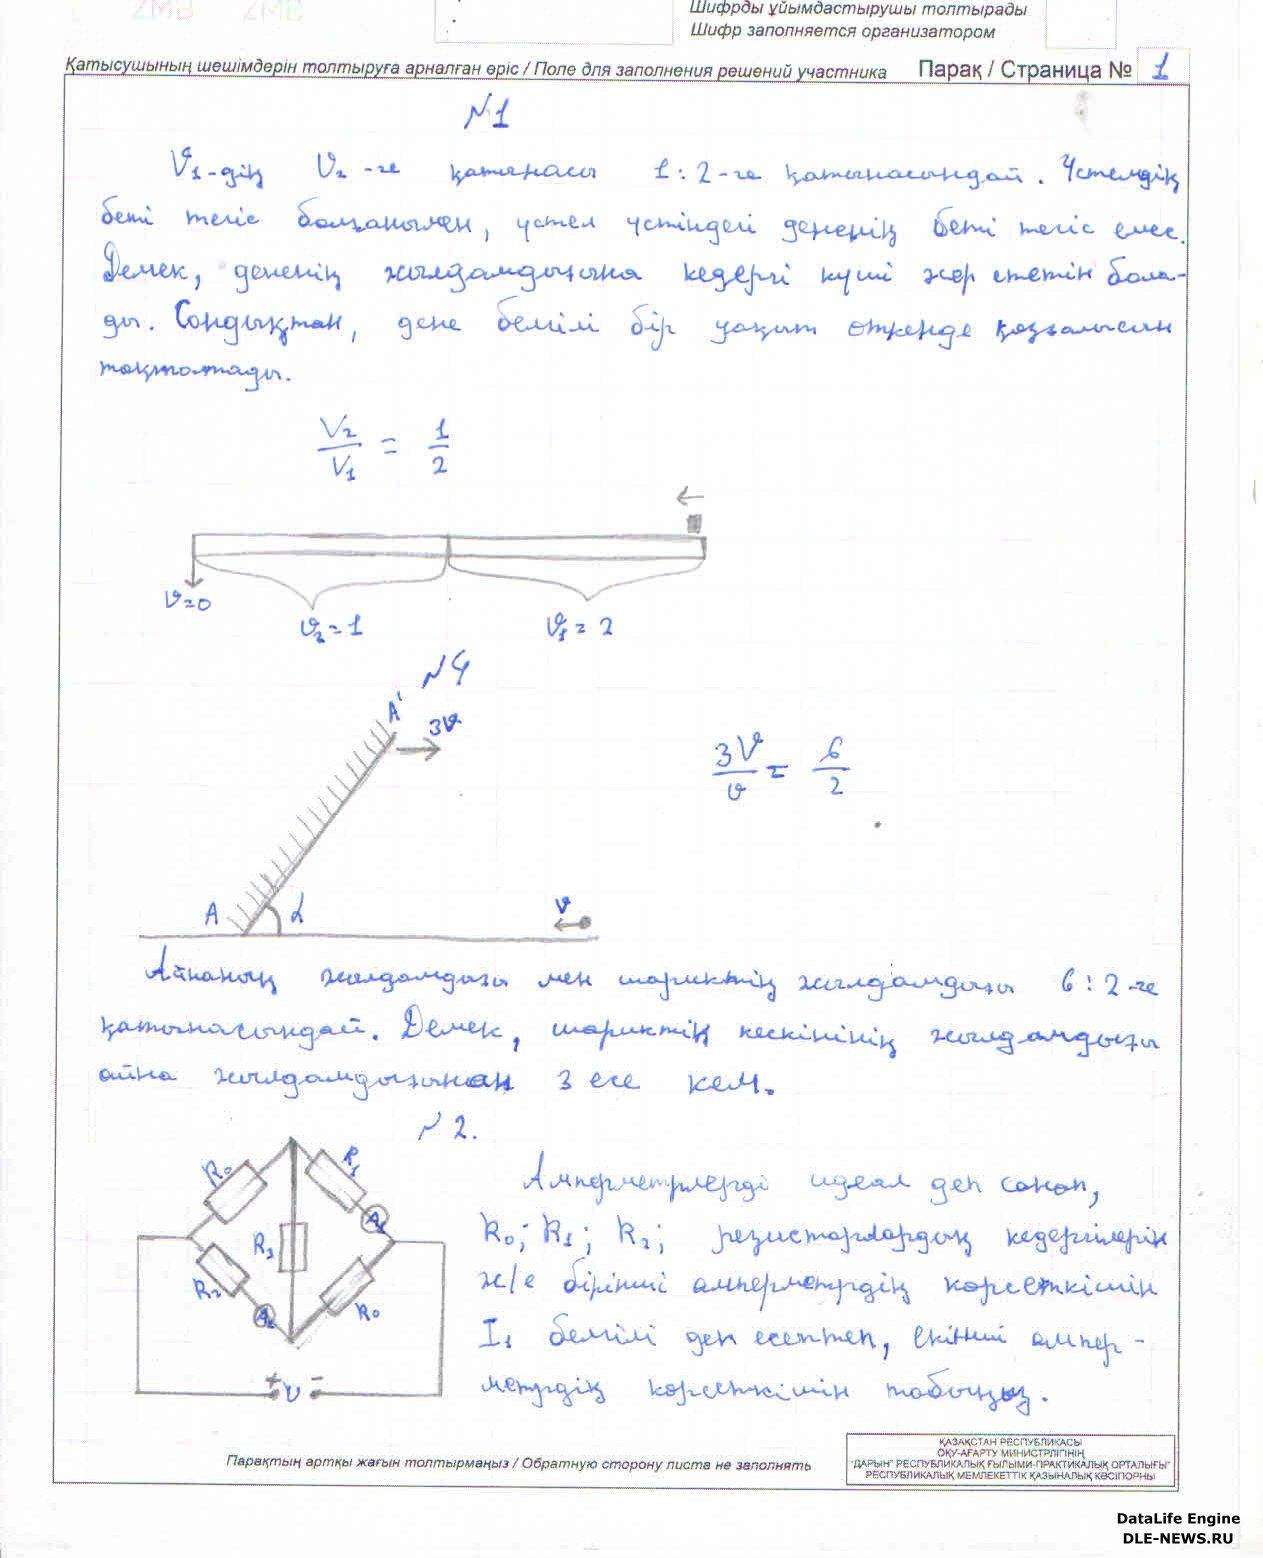 2МВ 2МВ
Шифрды ұйымдастырушы толтырады
Шифр заполняется организатором
Қатысушының шешімдерін толтыруға арналған өріс / Поле для заполнения решений участника Парақ / Страница № 1
№1
V₁-дің V₂-ге қатынасы 1:2-ге қатынасындай. Үстелдің
беті тегіс болғанымен, үстел үстіндегі дененің беті тегіс емес.
Демек, дененің жылдамдығына кедергі күші әсер ететін бола-
ды. Сондықтан, дене белгілі бір уақыт өткенде қозғалысын
тоқтатады.
V₂/V₁ = 1/2
V=0
V₂=1
V₁=2
№4
A'
3V
3V/V = 6/2
A
α
V
Айнаның жылдамдығы мен шариктің жылдамдығы 6:2-ге
қатынасындай. Демек, шариктің кескінінің жылдамдығы
айна жылдамдығынан 3 есе кем.
№2.
R₀
R₁
A₁
R₃
R₂
A₂
R₀
+ U -
Амперметрлерді идеал деп санап,
R₀; R₁; R₂; резисторлардың кедергілерін
ж/е бірінші амперметрдің көрсеткішін
I₁ белгілі деп есептеп, екінші ампер-
метрдің көрсеткішін табыңыз.
Парақтың артқы жағын толтырмаңыз / Обратную сторону листа не заполнять
ҚАЗАҚСТАН РЕСПУБЛИКАСЫ
ОҚУ-АҒАРТУ МИНИСТРЛІГІНІҢ
"ДАРЫН" РЕСПУБЛИКАЛЫҚ ҒЫЛЫМИ-ПРАКТИКАЛЫҚ ОРТАЛЫҒЫ"
РЕСПУБЛИКАЛЫҚ МЕМЛЕКЕТТІК ҚАЗЫНАЛЫҚ КӘСІПОРНЫ
DataLife Engine
DLE-NEWS.RU